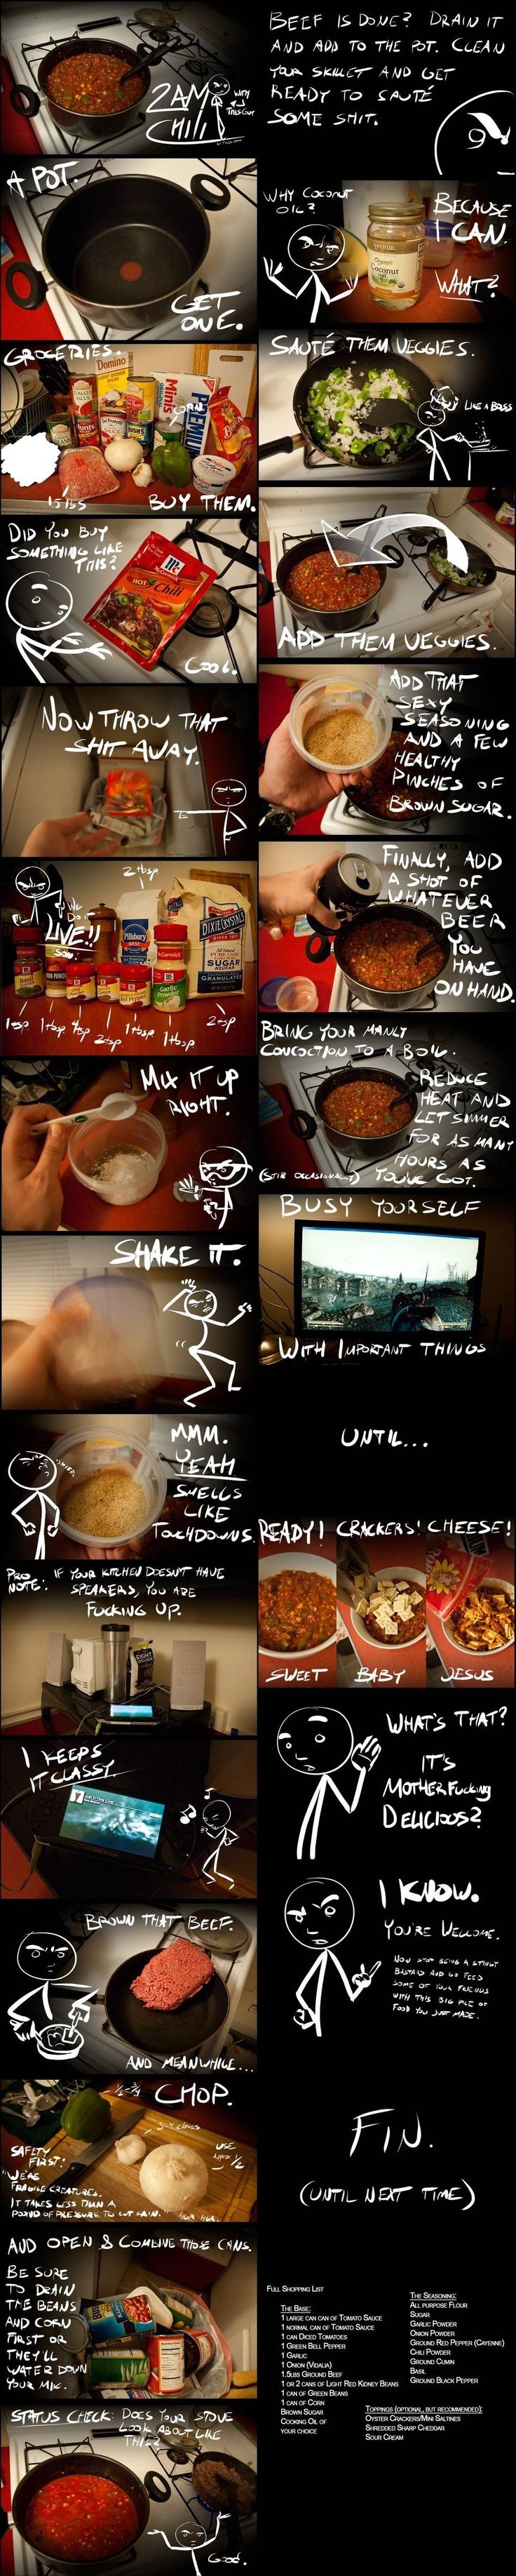 2AM
CHILI
WITH
THIS GUY
A POT.
GET
ONE.
GROCERIES.
Domino
Hunts
BUSH'S
Minis
PREMIUM
CORN
1.5 lbs
BUY THEM.
DID YOU BUY
SOMETHING LIKE
THIS?
McCormick
HOT
Chili
COOL.
NOW THROW THAT
SHIT AWAY.
2 tbsp
WE
DO IT
LIVE!!
SON.
Pillsbury
BEST
DIXIE CRYSTALS
SUGAR
AZUCAR
GRANULATED
McCormick
Garlic
Powder
1 tsp
1 tbsp
2 tsp
1 tbsp
1 tbsp
2 tsp
MIX IT UP
RIGHT.
SHAKE IT.
MMM.
YEAH
SMELLS
LIKE
TOUCHDOWNS.
PRO
NOTE: IF YOUR KITCHEN DOESN'T HAVE
SPEAKERS, YOU ARE
FUCKING UP.
I KEEPS
IT CLASSY.
BROWN THAT BEEF.
AND MEANWHILE...
CHOP.
USE
1/2
SAFETY
FIRST:
"WE'RE
FRAGILE CREATURES.
IT TAKES LESS THAN A
POUND OF PRESSURE TO CUT SKIN."
AND OPEN & COMBINE THOSE CANS.
BE SURE
TO DRAIN
THE BEANS
AND CORN
FIRST OR
THEY'LL
WATER DOWN
YOUR MIX.
STATUS CHECK: DOES YOUR STOVE
LOOK ABOUT LIKE
THIS?
GOOD.
BEEF IS DONE? DRAIN IT
AND ADD TO THE POT. CLEAN
YOUR SKILLET AND GET
READY TO SAUTÉ
SOME SHIT.
WHY COCONUT
OIL?
Organic
Coconut
BECAUSE
I CAN.
WHAT?
SAUTÉ THEM VEGGIES.
LIKE A BOSS
ADD THEM VEGGIES.
ADD THAT
SEXY
SEASONING
AND A FEW
HEALTHY
PINCHES OF
BROWN SUGAR.
FINALLY, ADD
A SHOT OF
WHATEVER
BEER
YOU
HAVE
ON HAND.
BRING YOUR MANLY
CONCOCTION TO A BOIL.
REDUCE
HEAT AND
LET SIMMER
FOR AS MANY
HOURS AS
YOU'VE GOT.
(STIR OCCASIONALLY)
BUSY YOURSELF
WITH IMPORTANT THINGS
UNTIL...
READY! CRACKERS! CHEESE!
SWEET BABY JESUS
WHAT'S THAT?
IT'S
MOTHERFUCKING
DELICIOUS?
I KNOW.
YOU'RE WELCOME.
NOW STOP BEING A STINGY
BASTARD AND GO FEED
SOME OF YOUR FRIENDS
WITH THIS BIG PILE OF
FOOD YOU JUST MADE.
FIN.
(UNTIL NEXT TIME)
FULL SHOPPING LIST
THE BASE:
1 LARGE CAN CAN OF TOMATO SAUCE
1 NORMAL CAN OF TOMATO SAUCE
1 CAN DICED TOMATOES
1 GREEN BELL PEPPER
1 GARLIC
1 ONION (VIDALIA)
1.5LBS GROUND BEEF
1 OR 2 CANS OF LIGHT RED KIDNEY BEANS
1 CAN OF GREEN BEANS
1 CAN OF CORN
BROWN SUGAR
COOKING OIL OF
YOUR CHOICE
THE SEASONING:
ALL PURPOSE FLOUR
SUGAR
GARLIC POWDER
ONION POWDER
GROUND RED PEPPER (CAYENNE)
CHILI POWDER
GROUND CUMIN
BASIL
GROUND BLACK PEPPER
TOPPINGS (OPTIONAL, BUT RECOMMENDED):
OYSTER CRACKERS/MINI SALTINES
SHREDDED SHARP CHEDDAR
SOUR CREAM